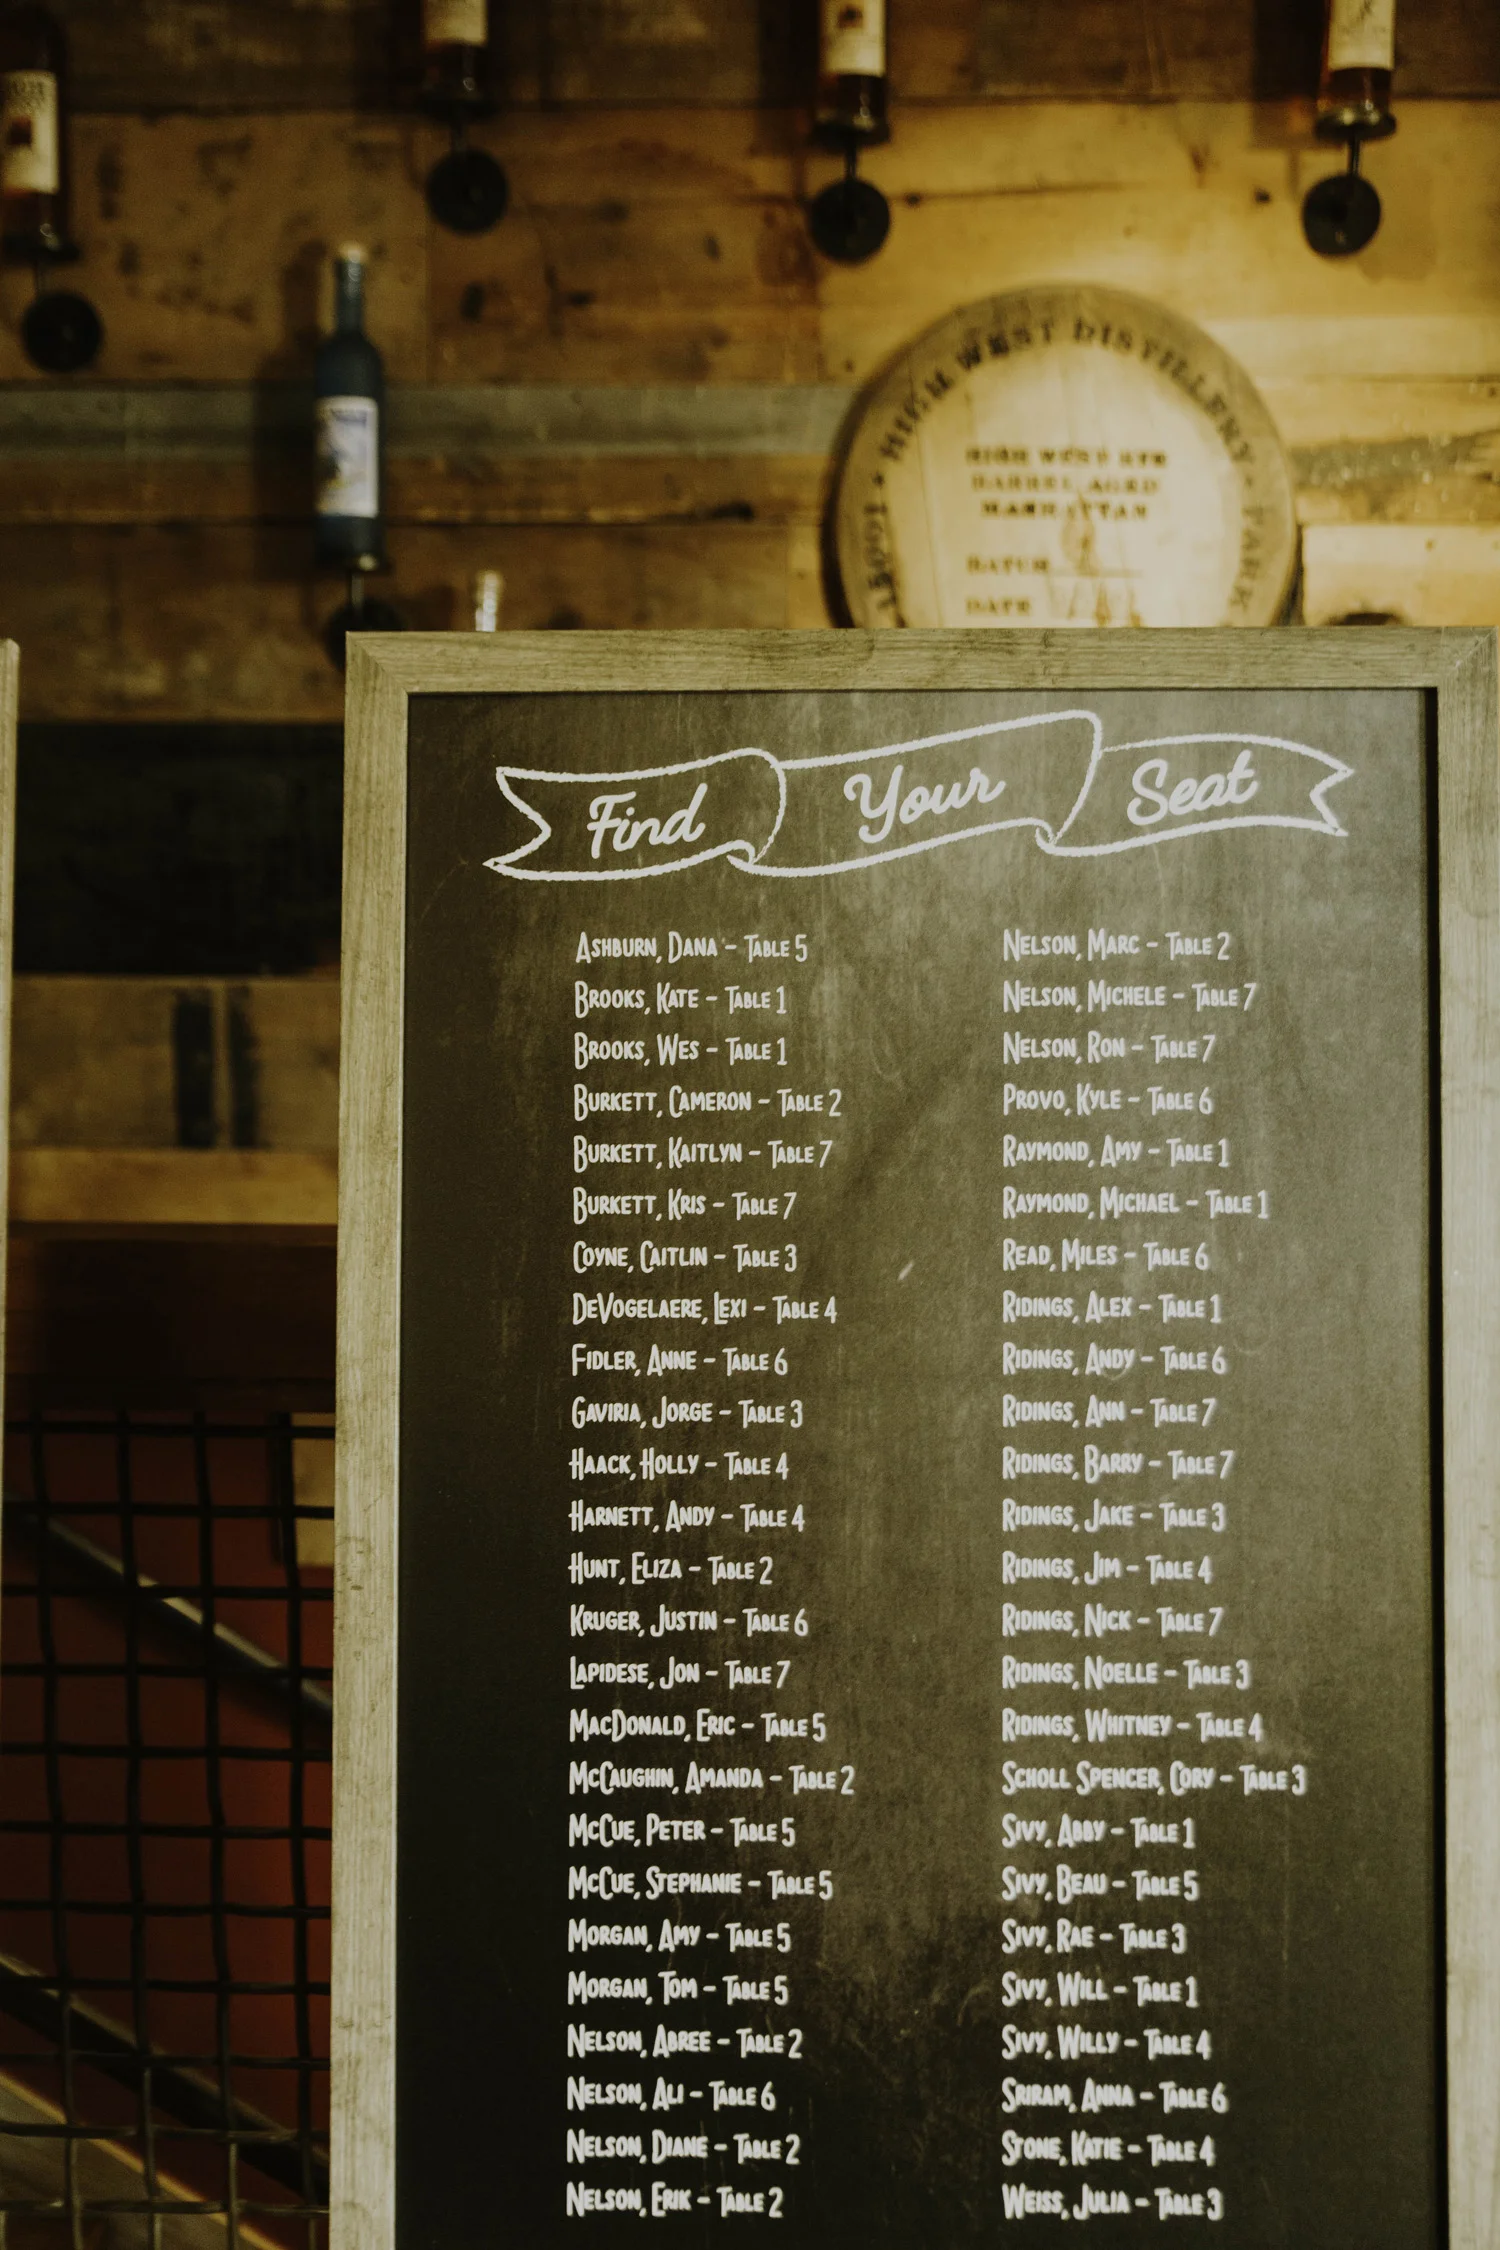 HIGH WEST DISTILLERY
PARK
HIGH WEST RYE
BARREL AGED
MANHATTAN
BATCH
DATE
Find Your Seat
Ashburn, Dana - Table 5
Brooks, Kate - Table 1
Brooks, Wes - Table 1
Burkett, Cameron - Table 2
Burkett, Kaitlyn - Table 7
Burkett, Kris - Table 7
Coyne, Caitlin - Table 3
DeVogelaere, Lexi - Table 4
Fidler, Anne - Table 6
Gaviria, Jorge - Table 3
Haack, Holly - Table 4
Harnett, Andy - Table 4
Hunt, Eliza - Table 2
Kruger, Justin - Table 6
Lapidese, Jon - Table 7
MacDonald, Eric - Table 5
McCaughin, Amanda - Table 2
McCue, Peter - Table 5
McCue, Stephanie - Table 5
Morgan, Amy - Table 5
Morgan, Tom - Table 5
Nelson, Abree - Table 2
Nelson, Ali - Table 6
Nelson, Diane - Table 2
Nelson, Erik - Table 2
Nelson, Marc - Table 2
Nelson, Michele - Table 7
Nelson, Ron - Table 7
Provo, Kyle - Table 6
Raymond, Amy - Table 1
Raymond, Michael - Table 1
Read, Miles - Table 6
Ridings, Alex - Table 1
Ridings, Andy - Table 6
Ridings, Ann - Table 7
Ridings, Barry - Table 7
Ridings, Jake - Table 3
Ridings, Jim - Table 4
Ridings, Nick - Table 7
Ridings, Noelle - Table 3
Ridings, Whitney - Table 4
Scholl Spencer, Cory - Table 3
Sivy, Abby - Table 1
Sivy, Beau - Table 5
Sivy, Rae - Table 3
Sivy, Will - Table 1
Sivy, Willy - Table 4
Sriram, Anna - Table 6
Stone, Katie - Table 4
Weiss, Julia - Table 3